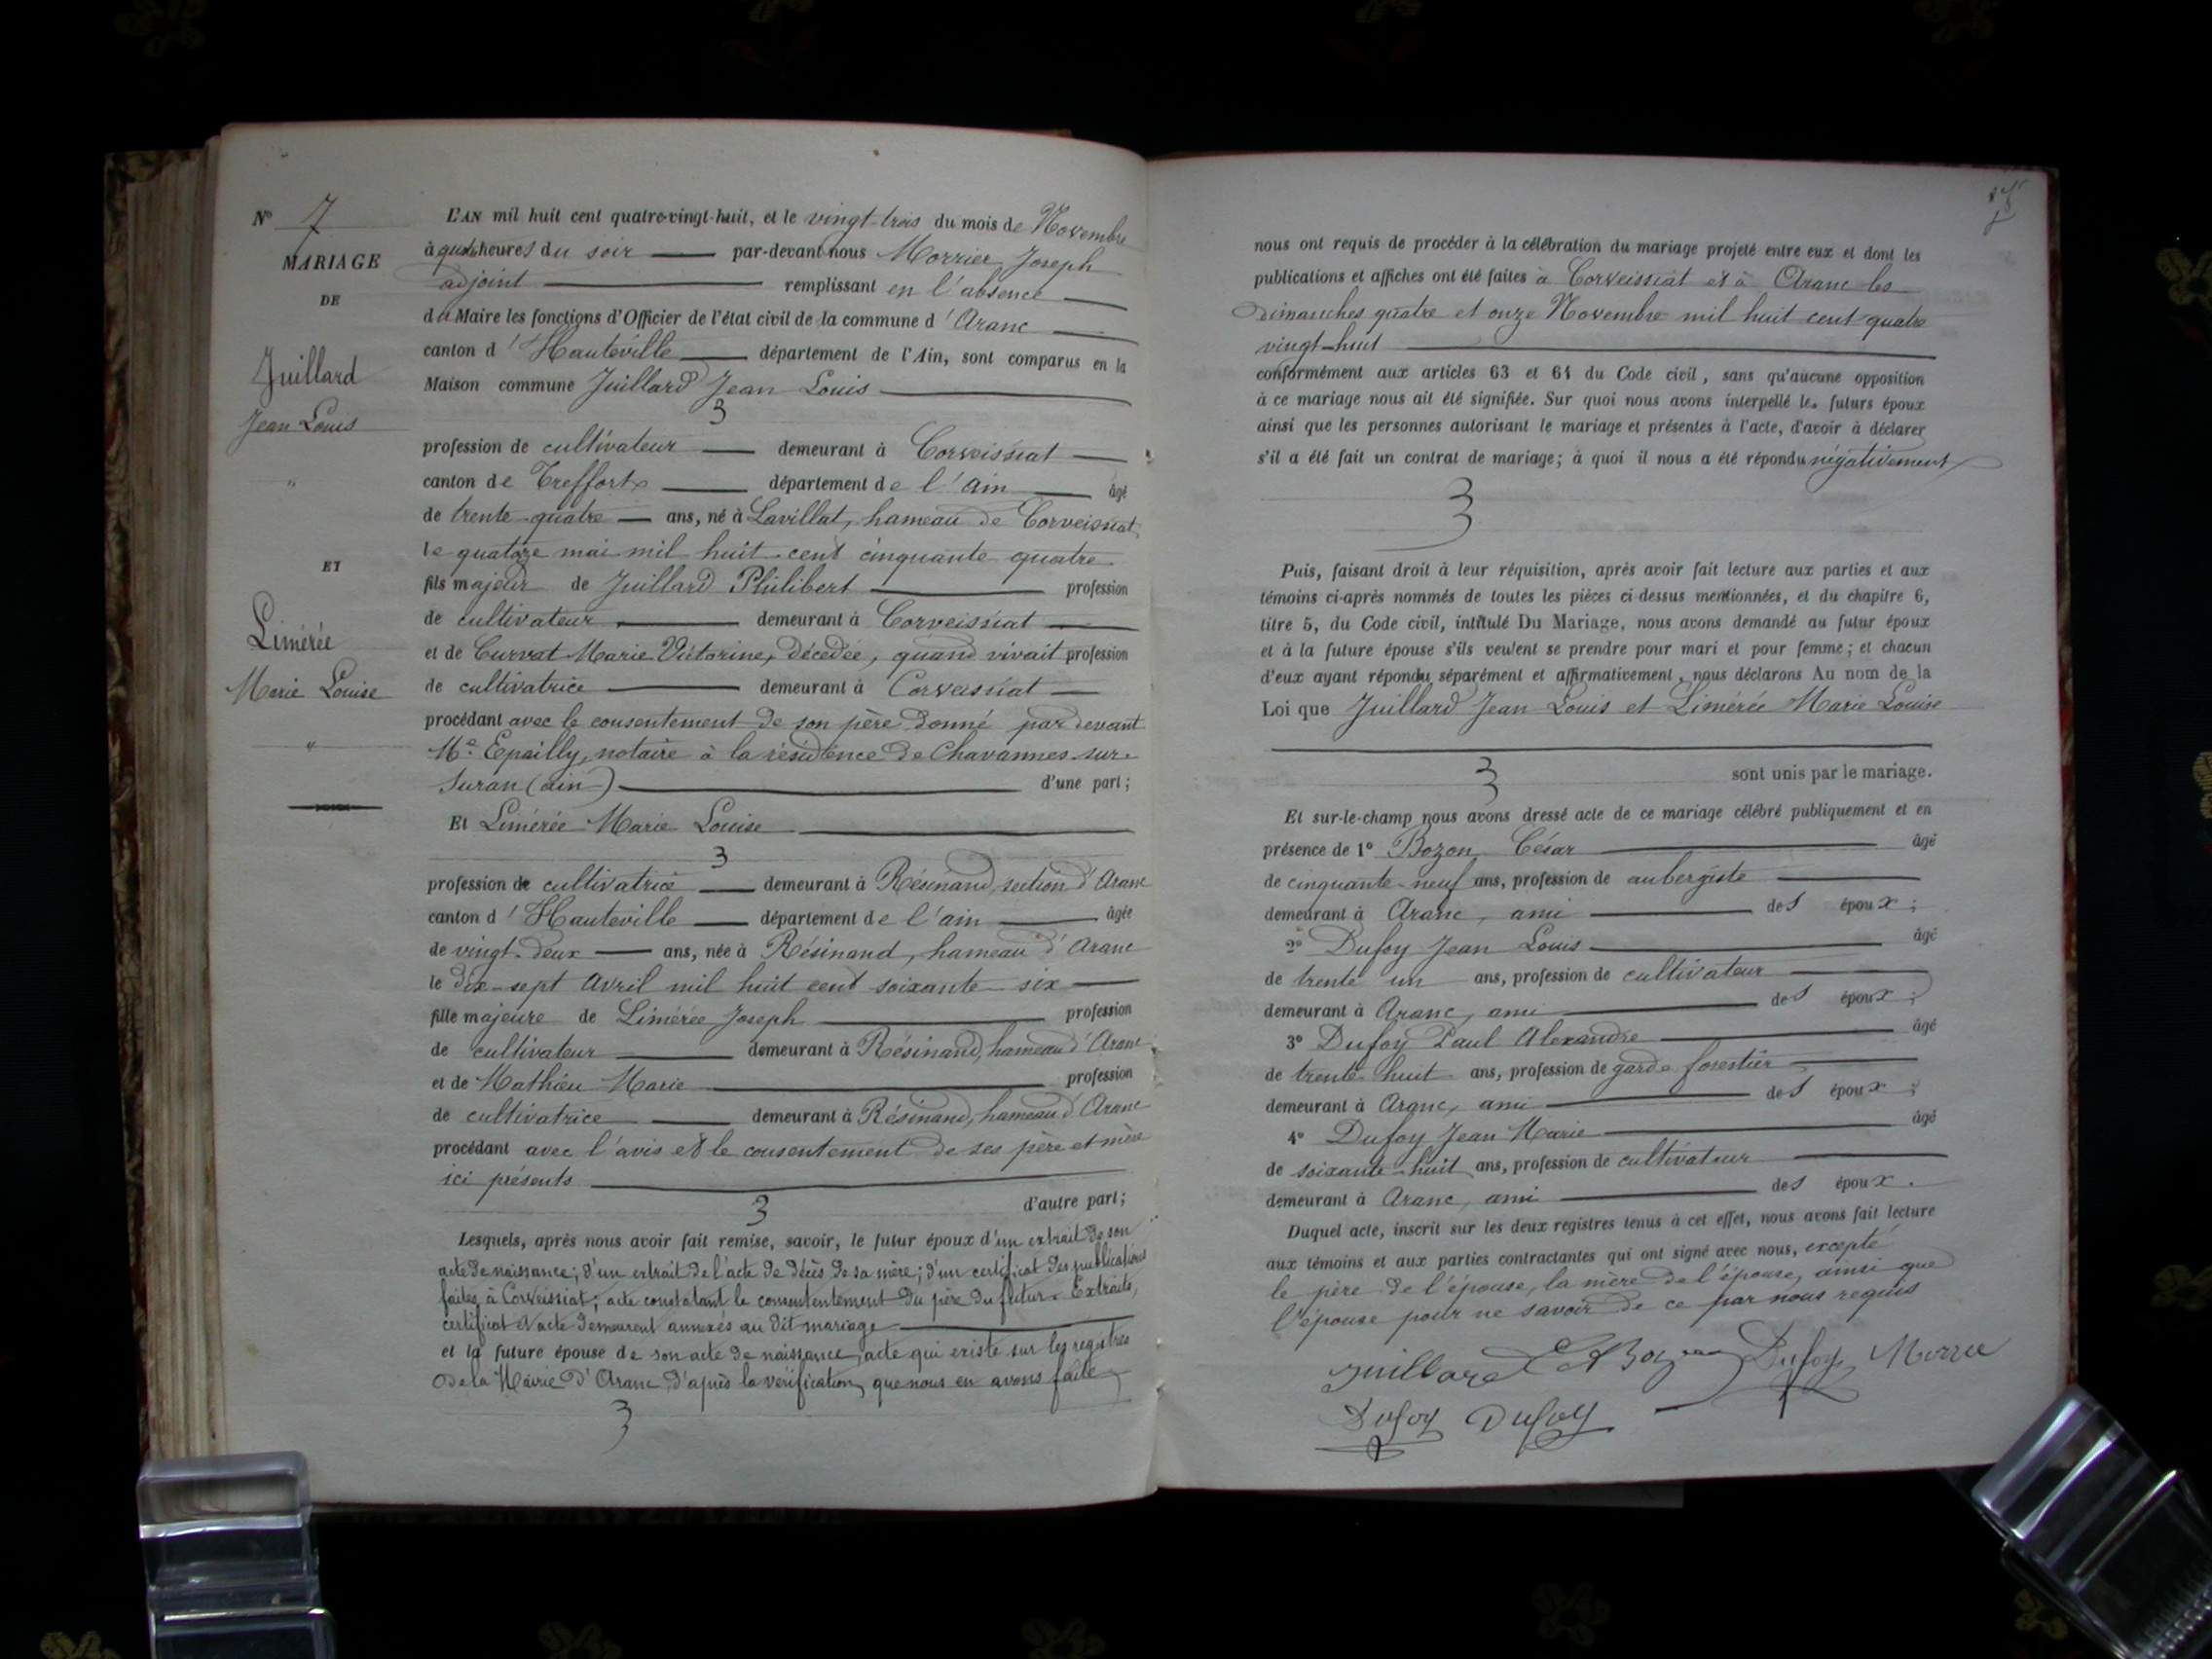 N° 7
MARIAGE
DE
Juillard
Jean Louis
"
ET
Limérée
Marie Louise
"
L'AN mil huit cent quatre-vingt-huit, et le vingt-trois du mois de Novembre
à quatre heures du soir par-devant nous Morrier Joseph
adjoint remplissant en l'absence
du Maire les fonctions d'Officier de l'état civil de la commune d'Aranc
canton d'Hauteville département de l'Ain, sont comparus en la
Maison commune Juillard Jean Louis
3
profession de cultivateur demeurant à Corveissiat
canton de Treffort département de l'Ain âgé
de trente-quatre ans, né à Lavillat, hameau de Corveissiat,
le quatorze mai mil huit cent cinquante quatre
fils majeur de Juillard Philibert profession
de cultivateur demeurant à Corveissiat
et de Curvat Marie Victorine, décédée, quand vivait profession
de cultivatrice demeurant à Corveissiat
procédant avec le consentement de son père donné par devant
Me. Epailly, notaire à la résidence de Chavannes-sur-
Suran (ain) d'une part;
Et Limérée Marie Louise
3
profession de cultivatrice demeurant à Résinand, section d'Aranc
canton d'Hauteville département de l'ain âgée
de vingt-deux ans, née à Résinand, hameau d'Aranc
le dix-sept Avril mil huit cent soixante-six
fille majeure de Limérée Joseph profession
de cultivateur demeurant à Résinand, hameau d'Aranc
et de Mathieu Marie profession
de cultivatrice demeurant à Résinand, hameau d'Aranc
procédant avec l'avis et le consentement de ses père et mère
ici présents
3 d'autre part;
Lesquels, après nous avoir fait remise, savoir, le futur époux d'un extrait de son
acte de naissance; d'un extrait de l'acte de décès de sa mère; d'un certificat des publications
faites à Corveissiat; acte constatant le consententement du père du futur. Extraits,
certificat et acte demeurent annexés au dit mariage
et la future épouse de son acte de naissance, acte qui existe sur les registres
de la Mairie d'Aranc, d'après la vérification que nous en avons faite
3
nous ont requis de procéder à la célébration du mariage projeté entre eux et dont les
publications et affiches ont été faites à Corveissiat et à Aranc les
Dimanches quatre et onze Novembre mil huit cent quatre
vingt-huit
conformément aux articles 63 et 64 du Code civil, sans qu'aucune opposition
à ce mariage nous ait été signifiée. Sur quoi nous avons interpellé les futurs époux
ainsi que les personnes autorisant le mariage et présentes à l'acte, d'avoir à déclarer
s'il a été fait un contrat de mariage; à quoi il nous a été répondu négativement
3
Puis, faisant droit à leur réquisition, après avoir fait lecture aux parties et aux
témoins ci-après nommés de toutes les pièces ci-dessus mentionnées, et du chapitre 6,
titre 5, du Code civil, intitulé Du Mariage, nous avons demandé au futur époux
et à la future épouse s'ils veulent se prendre pour mari et pour femme; et chacun
d'eux ayant répondu séparément et affirmativement, nous déclarons Au nom de la
Loi que Juillard Jean Louis et Limérée Marie Louise
3 sont unis par le mariage.
Et sur-le-champ nous avons dressé acte de ce mariage célébré publiquement et en
présence de 1° Bozon César âgé
de cinquante-neuf ans, profession de aubergiste
demeurant à Aranc, ami des époux;
2° Dufoy Jean Louis âgé
de trente un ans, profession de cultivateur
demeurant à Aranc, ami des époux;
3° Dufoy Paul Alexandre âgé
de trente-huit ans, profession de garde forestier
demeurant à Aranc, ami des époux;
4° Dufoy Jean Marie âgé
de soixante-huit ans, profession de cultivateur
demeurant à Aranc, ami des époux.
Duquel acte, inscrit sur les deux registres tenus à cet effet, nous avons fait lecture
aux témoins et aux parties contractantes qui ont signé avec nous, excepté
le père de l'épouse, la mère de l'épouse, ainsi que
l'épouse pour ne savoir de ce par nous requis
Juillard Bozon Dufoy Morrie
Dufoy Dufoy